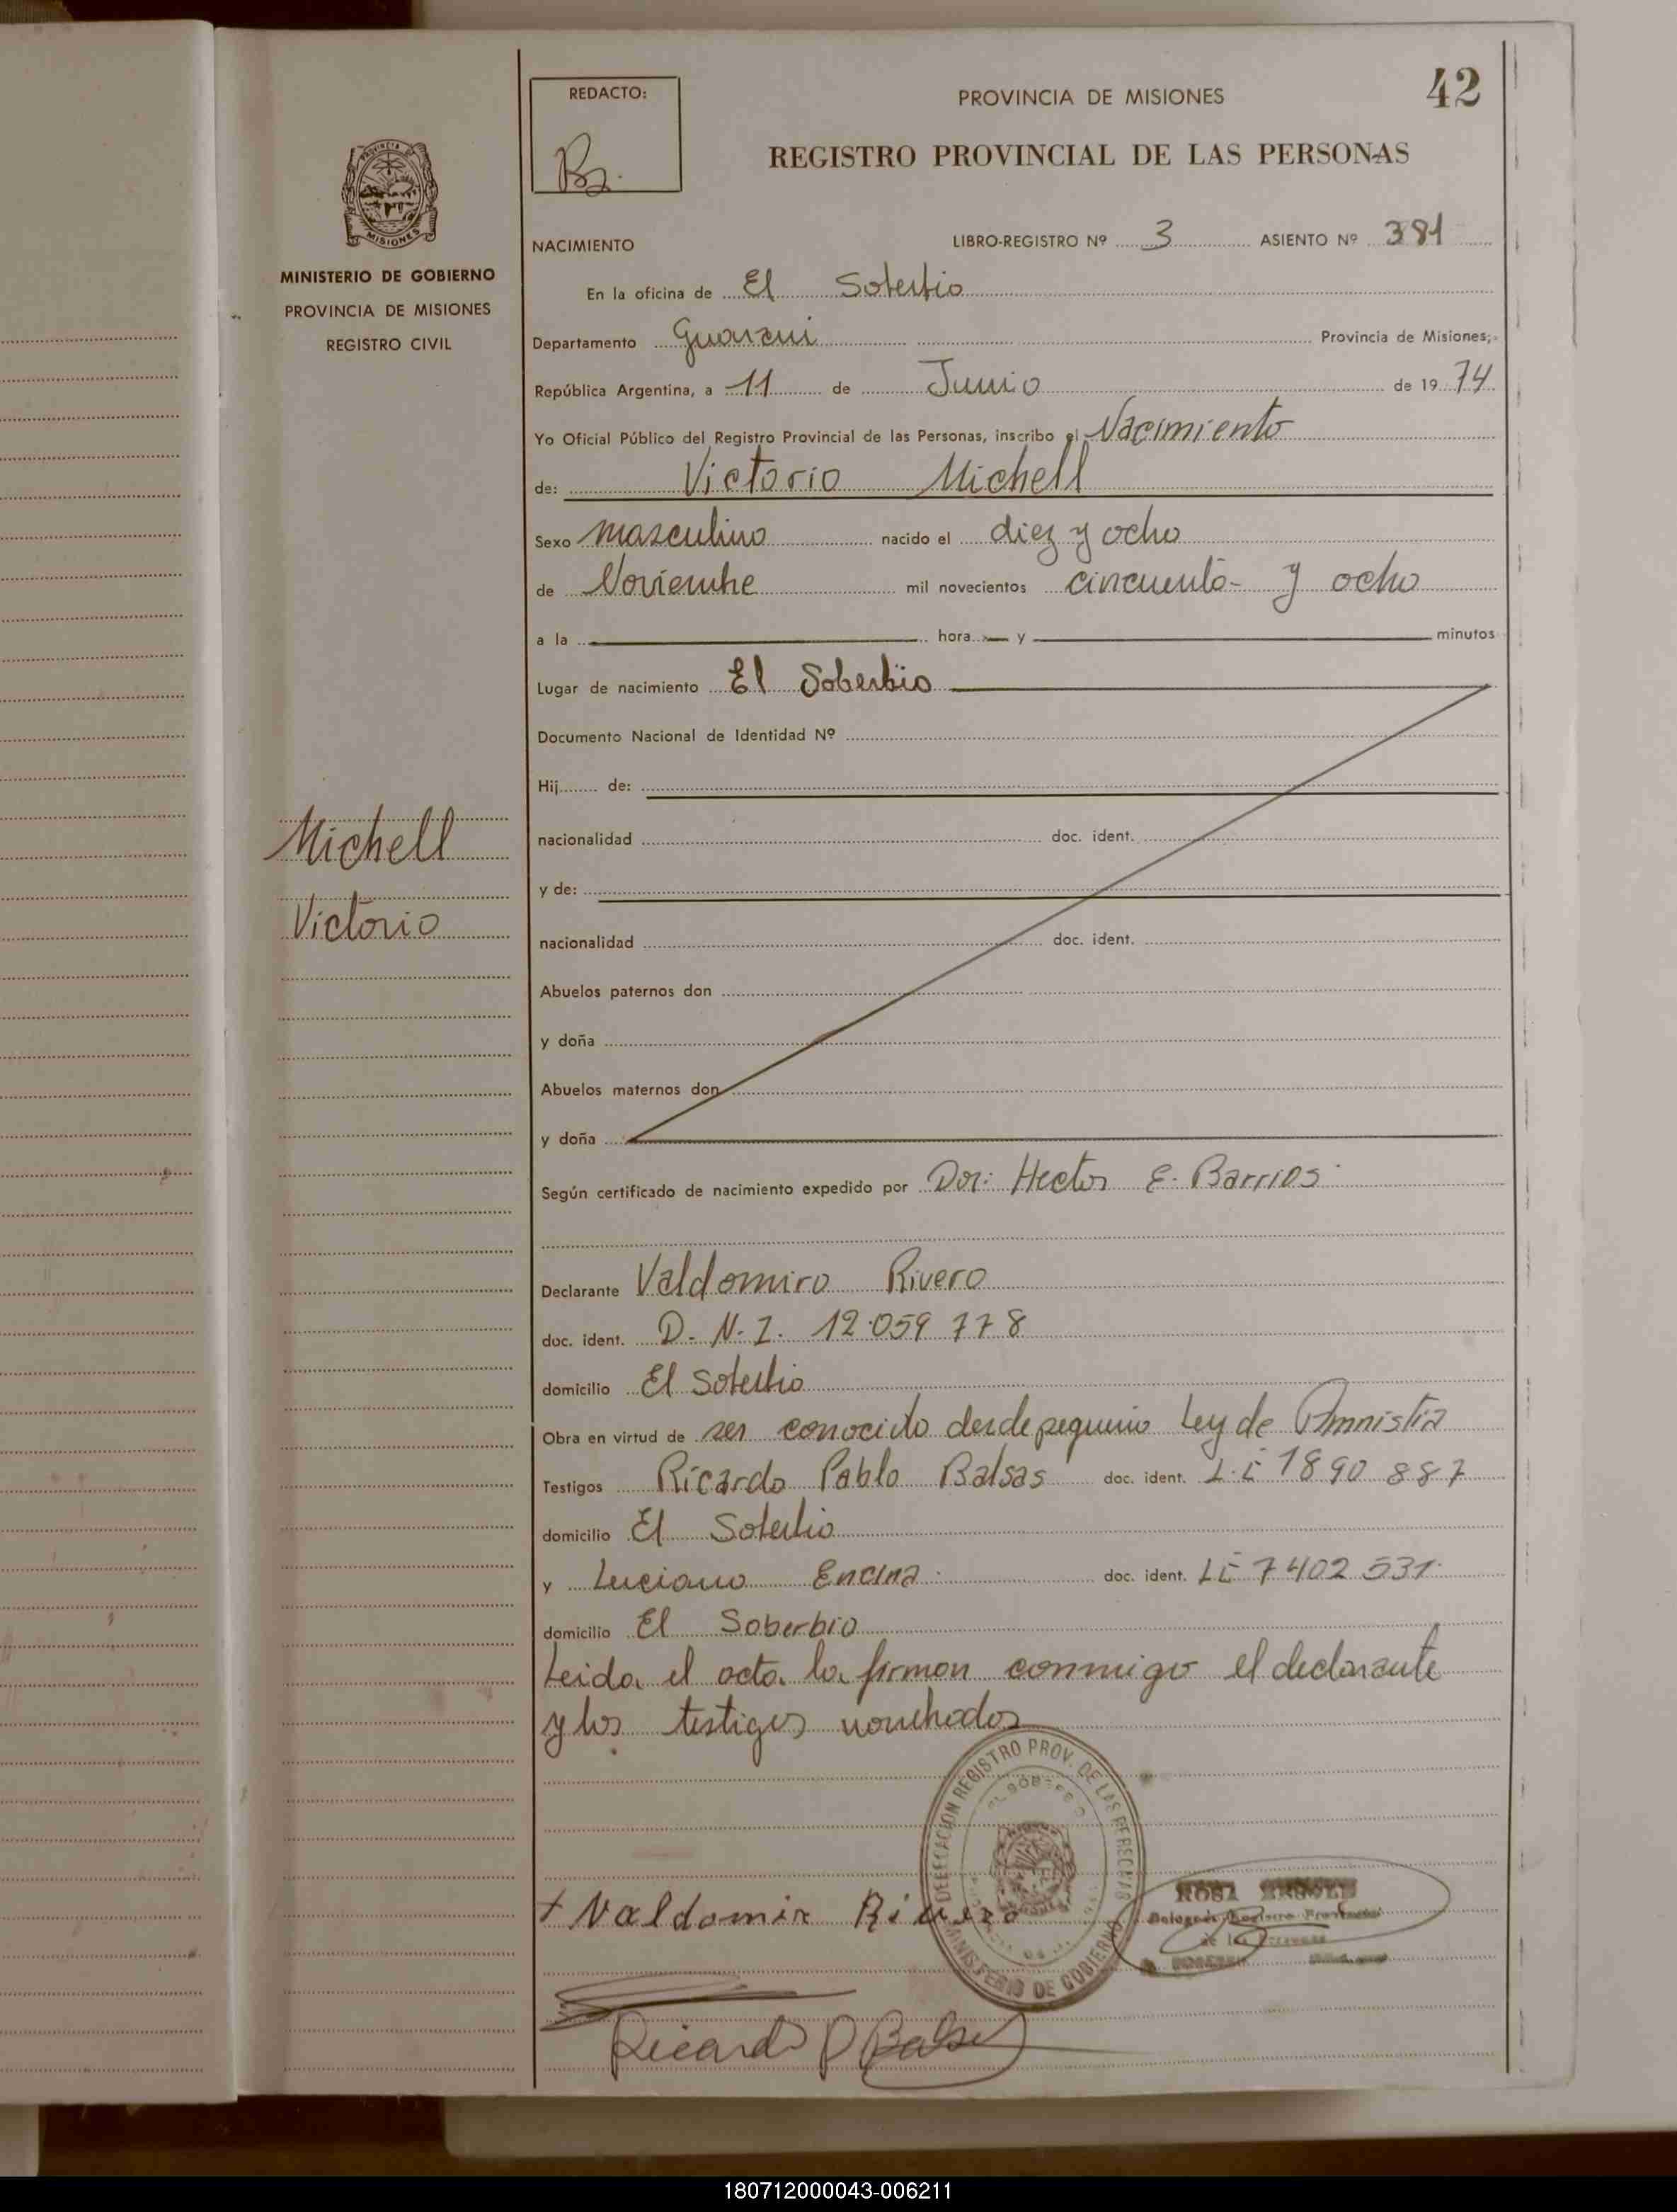 REDACTO:
Bz.
PROVINCIA DE MISIONES
42
REGISTRO PROVINCIAL DE LAS PERSONAS
PROVINCIA DE
MISIONES
MINISTERIO DE GOBIERNO
PROVINCIA DE MISIONES
REGISTRO CIVIL
NACIMIENTO
LIBRO-REGISTRO Nº 3 ASIENTO Nº 381
En la oficina de El Soberbio
Departamento Guarani Provincia de Misiones;
República Argentina, a 11 de Junio de 1974
Yo Oficial Público del Registro Provincial de las Personas, inscribo el Nacimiento
de: Victorio Michell
Sexo masculino nacido el diez y ocho
de Noviembre mil novecientos cincuenta y ocho
a la hora y minutos
Lugar de nacimiento El Soberbio
Documento Nacional de Identidad Nº
Hij de:
nacionalidad doc. ident.
y de:
nacionalidad doc. ident.
Abuelos paternos don
y doña
Abuelos maternos don
y doña
Michell
Victorio
Según certificado de nacimiento expedido por Dor: Hector E. Barrios
Declarante Valdomiro Rivero
doc. ident. D.N.I. 12.059 778
domicilio El Soberbio
Obra en virtud de ser conocido desde pequenio Ley de Amnistia
Testigos Ricardo Pablo Balsas doc. ident. L.E 1890 887
domicilio El Soberbio
y Luciano Encina doc. ident. LE 7402 531
domicilio El Soberbio
Leida el acta la firman conmigo el declarante
y los testigos nombrados
DELEGACION REGISTRO PROV. DE LAS PERSONAS
EL SOBERBIO
MINISTERIO DE GOBIERNO
+ Valdomir Rivero
ROSA
de las Personas
Ricardo P Balsas
180712000043-006211